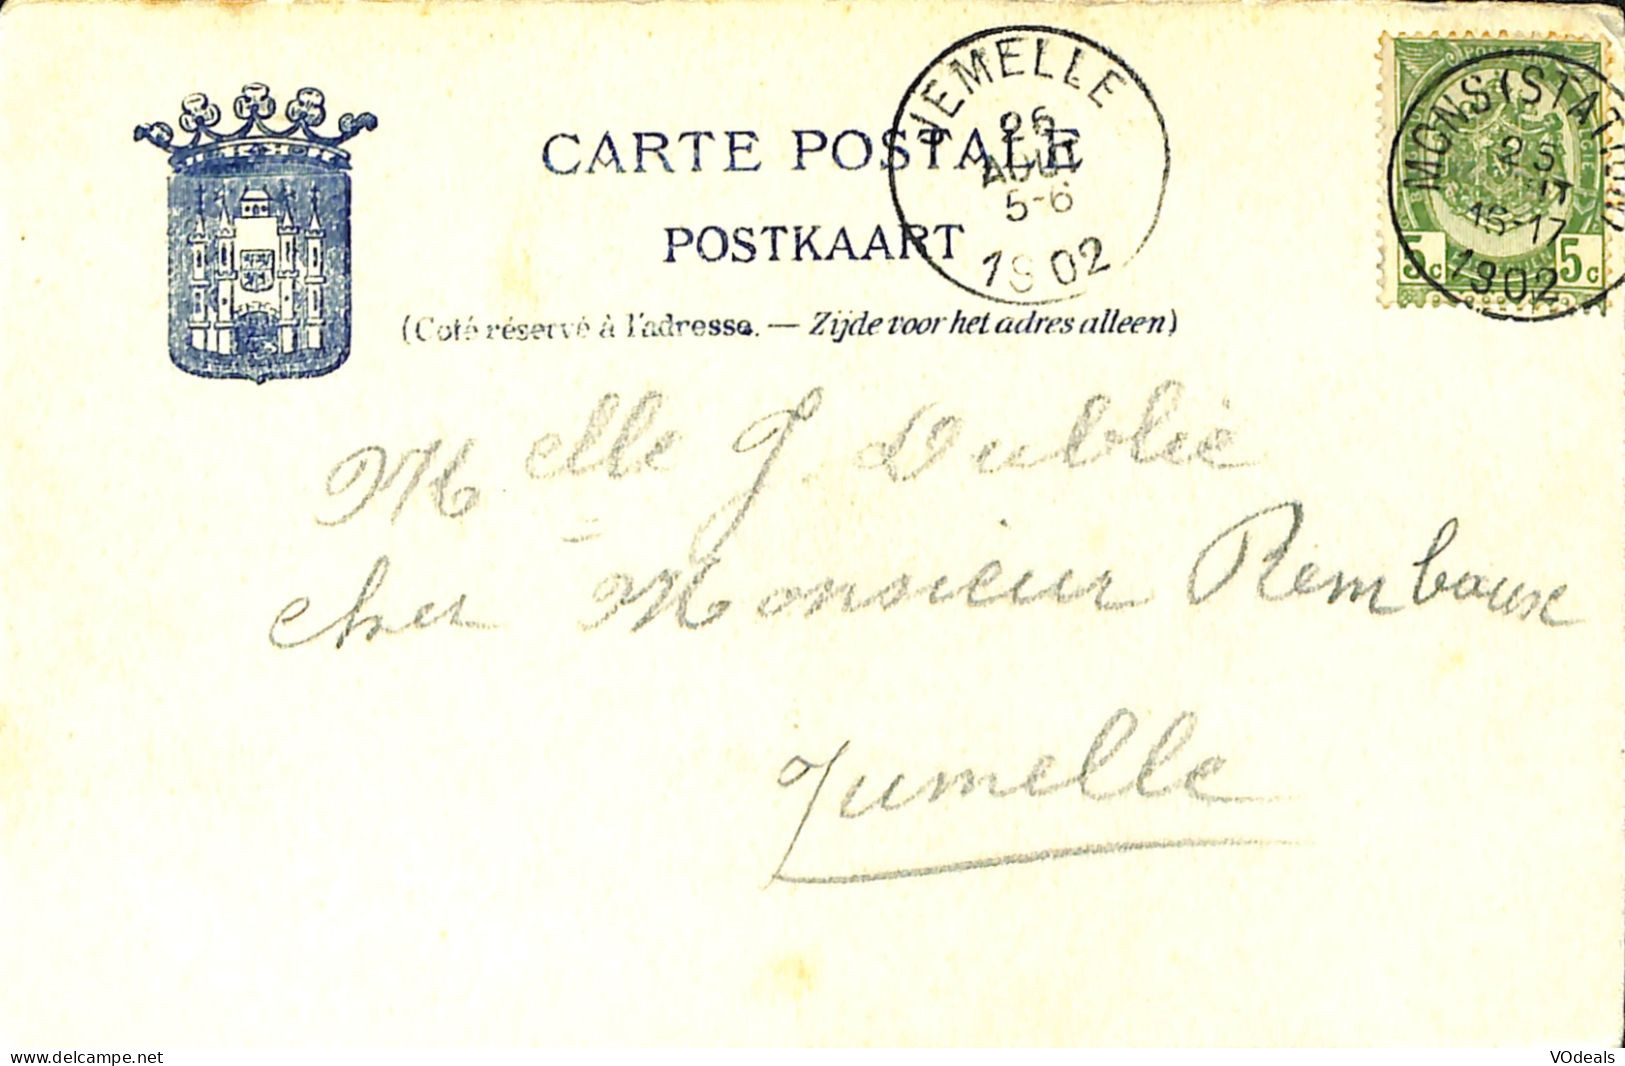 CARTE POSTALE
POSTKAART
(Coté réservé à l'adresse. — Zijde voor het adres alleen)
JEMELLE
26
AOUT
5-6
1902
MONS (STATION)
25
15-17
1902
5c 5c
Melle J. Dublie
chez Monsieur Remboux
Jumelle
www.delcampe.net
VOdeals